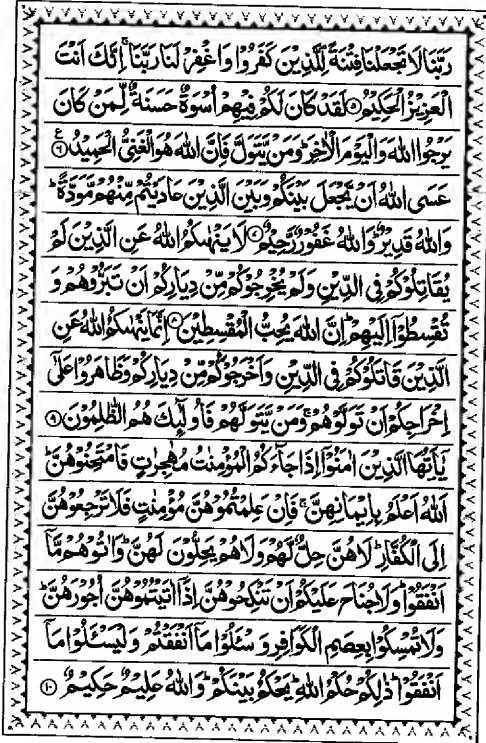 رَبَّنَا لَا تَجْعَلْنَا فِتْنَةً لِّلَّذِيْنَ كَفَرُوْا وَاغْفِرْ لَنَا رَبَّنَا ۚ اِنَّكَ اَنْتَ
الْعَزِيْزُ الْحَكِيْمُ ۵ لَقَدْ كَانَ لَكُمْ فِيْهِمْ اُسْوَةٌ حَسَنَةٌ لِّمَنْ كَانَ
يَرْجُوا اللّٰهَ وَالْيَوْمَ الْاٰخِرَ ؕ وَمَنْ يَّتَوَلَّ فَاِنَّ اللّٰهَ هُوَ الْغَنِيُّ الْحَمِيْدُ ۶ ع
عَسَى اللّٰهُ اَنْ يَّجْعَلَ بَيْنَكُمْ وَبَيْنَ الَّذِيْنَ عَادَيْتُمْ مِّنْهُمْ مَّوَدَّةً ؕ
وَاللّٰهُ قَدِيْرٌ ؕ وَاللّٰهُ غَفُوْرٌ رَّحِيْمٌ ۷ لَا يَنْهٰىكُمُ اللّٰهُ عَنِ الَّذِيْنَ لَمْ
يُقَاتِلُوْكُمْ فِى الدِّيْنِ وَلَمْ يُخْرِجُوْكُمْ مِّنْ دِيَارِكُمْ اَنْ تَبَرُّوْهُمْ وَ
تُقْسِطُوْۤا اِلَيْهِمْ ؕ اِنَّ اللّٰهَ يُحِبُّ الْمُقْسِطِيْنَ ۸ اِنَّمَا يَنْهٰىكُمُ اللّٰهُ عَنِ
الَّذِيْنَ قَاتَلُوْكُمْ فِى الدِّيْنِ وَاَخْرَجُوْكُمْ مِّنْ دِيَارِكُمْ وَظَاهَرُوْا عَلٰۤى
اِخْرَاجِكُمْ اَنْ تَوَلَّوْهُمْ ۚ وَمَنْ يَّتَوَلَّهُمْ فَاُولٰٓئِكَ هُمُ الظّٰلِمُوْنَ ۹
يٰۤاَيُّهَا الَّذِيْنَ اٰمَنُوْۤا اِذَا جَآءَكُمُ الْمُؤْمِنٰتُ مُهٰجِرٰتٍ فَامْتَحِنُوْهُنَّ ؕ
اَللّٰهُ اَعْلَمُ بِاِيْمَانِهِنَّ ۚ فَاِنْ عَلِمْتُمُوْهُنَّ مُؤْمِنٰتٍ فَلَا تَرْجِعُوْهُنَّ
اِلَى الْكُفَّارِ ؕ لَا هُنَّ حِلٌّ لَّهُمْ وَلَا هُمْ يَحِلُّوْنَ لَهُنَّ ؕ وَاٰتُوْهُمْ مَّاۤ
اَنْفَقُوْا ؕ وَلَا جُنَاحَ عَلَيْكُمْ اَنْ تَنْكِحُوْهُنَّ اِذَاۤ اٰتَيْتُمُوْهُنَّ اُجُوْرَهُنَّ ؕ
وَلَا تُمْسِكُوْا بِعِصَمِ الْكَوَافِرِ وَ سْئَلُوْا مَاۤ اَنْفَقْتُمْ وَلْيَسْئَلُوْا مَاۤ
اَنْفَقُوْا ؕ ذٰلِكُمْ حُكْمُ اللّٰهِ ؕ يَحْكُمُ بَيْنَكُمْ ؕ وَاللّٰهُ عَلِيْمٌ حَكِيْمٌ ۱۰